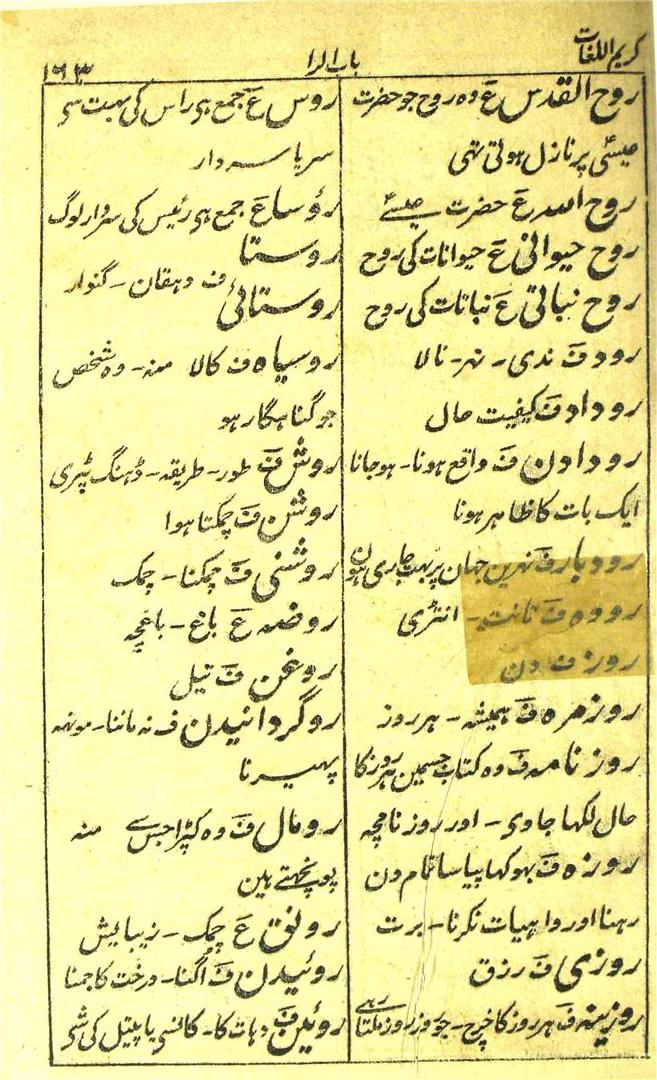 کریم اللغات
باب الرا
۱۶۳
روح القدس ع وہ روح جو حضرت
عیسیٰ پر نازل ہوئی تہی
روح اللہ ع حضرت عیسےٰ
روح حیوانی ع حیوانات کی روح
روح نباتی ع نباتات کی روح
رود ف ندی - نہر - نالا
روداد ف کیفیت حال
رودادن ف واقع ہونا - ہوجانا
ایک بات کا ظاہر ہونا
رودبار ف نہرین جہان پر بہت جاری ہون
رودہ ف تانت - انتڑی
روز ف دن
روزمرہ ف ہمیشہ - ہر روز
روزنامہ ف وہ کتاب جسمین ہر روز کا
حال لکہا جاوی - اور روزنامچہ
روزہ ف بہوکہا پیاسا تمام دن
رہنا اور واہیات نکرنا - برت
روزی ف رزق
روزینہ ف ہر روز کا خرچ - جو روز روز ملتا رہے
روس ع جمع ہی راس کی بہت سی
سر یا سردار
رؤسا ع جمع ہی رئیس کی سردار لوگ
روستا
روستائی ف دہقان - گنوار
روسیاہ ف کالا منہ - وہ شخص
جو گناہگار ہو
روش ف طور - طریقہ - ڈہنگ پٹری
روشن ف چمکتا ہوا
روشنی ف چمکنا - چمک
روضہ ع باغ - باغچہ
روغن ف تیل
روگردانیدن ف نہ ماننا - مونہہ
پہیرنا
رومال ف وہ کپڑا جس سے منہ
پونچہتے ہین
رونق ع چمک - زیبایش
روئیدن ف اگنا - درخت کا جمنا
روئین ف دہات کا - کانسی یا پیتل کی شی